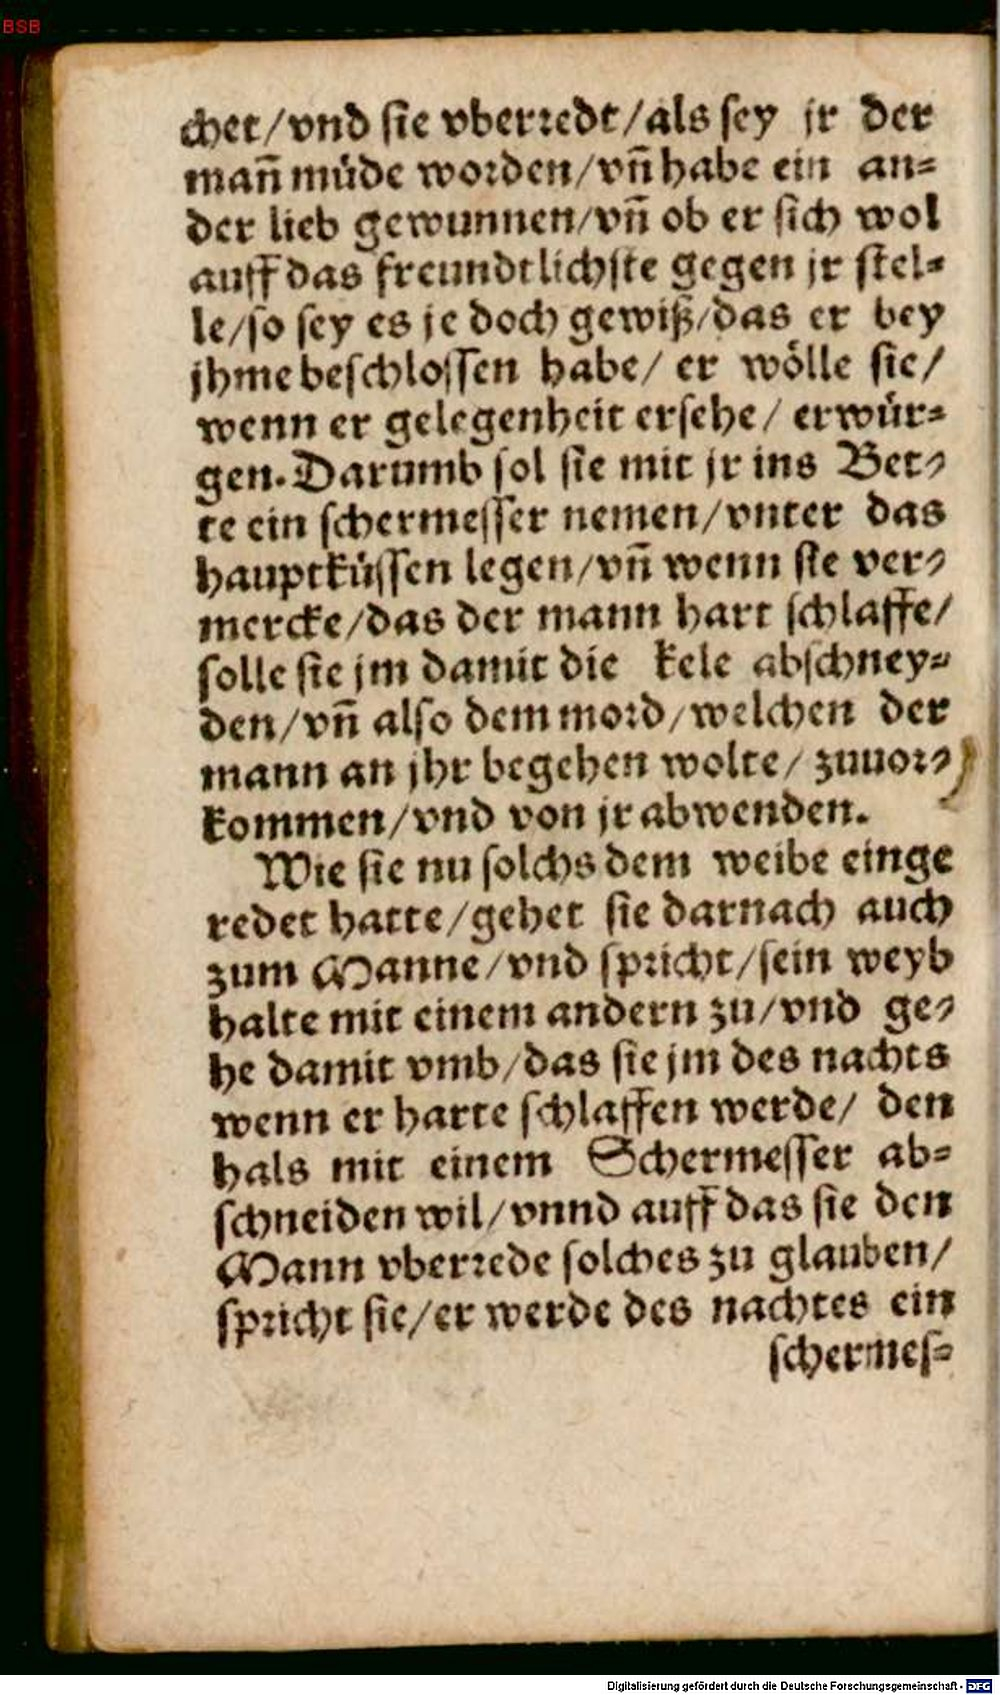 BSB
chet/vnd sie vberredt/als sey jr der
mañ müde worden/vñ habe ein an=
der lieb gewunnen/vñ ob er sich wol
auff das freundtlichste gegen jr stel=
le/so sey es je doch gewiß/das er bey
jhme beschlossen habe/ er wölle sie/
wenn er gelegenheit ersehe/ erwür=
gen. Darumb sol sie mit jr ins Bet=
te ein schermesser nemen/vnter das
hauptküssen legen/vñ wenn sie ver=
mercke/das der mann hart schlaffe/
solle sie jm damit die kele abschney=
den/vñ also dem mord/welchen der
mann an jhr begehen wolte/ zuuor=
kommen/vnd von jr abwenden.
Wie sie nu solchs dem weibe einge
redet hatte/gehet sie darnach auch
zum Manne/vnd spricht/sein weyb
halte mit einem andern zu/vnd ge=
he damit vmb/das sie jm des nachts
wenn er harte schlaffen werde/ den
hals mit einem Schermesser ab=
schneiden wil/vnnd auff das sie den
Mann vberrede solches zu glauben/
spricht sie/er werde des nachtes ein
schermes=
Digitalisierung gefördert durch die Deutsche Forschungsgemeinschaft - DFG